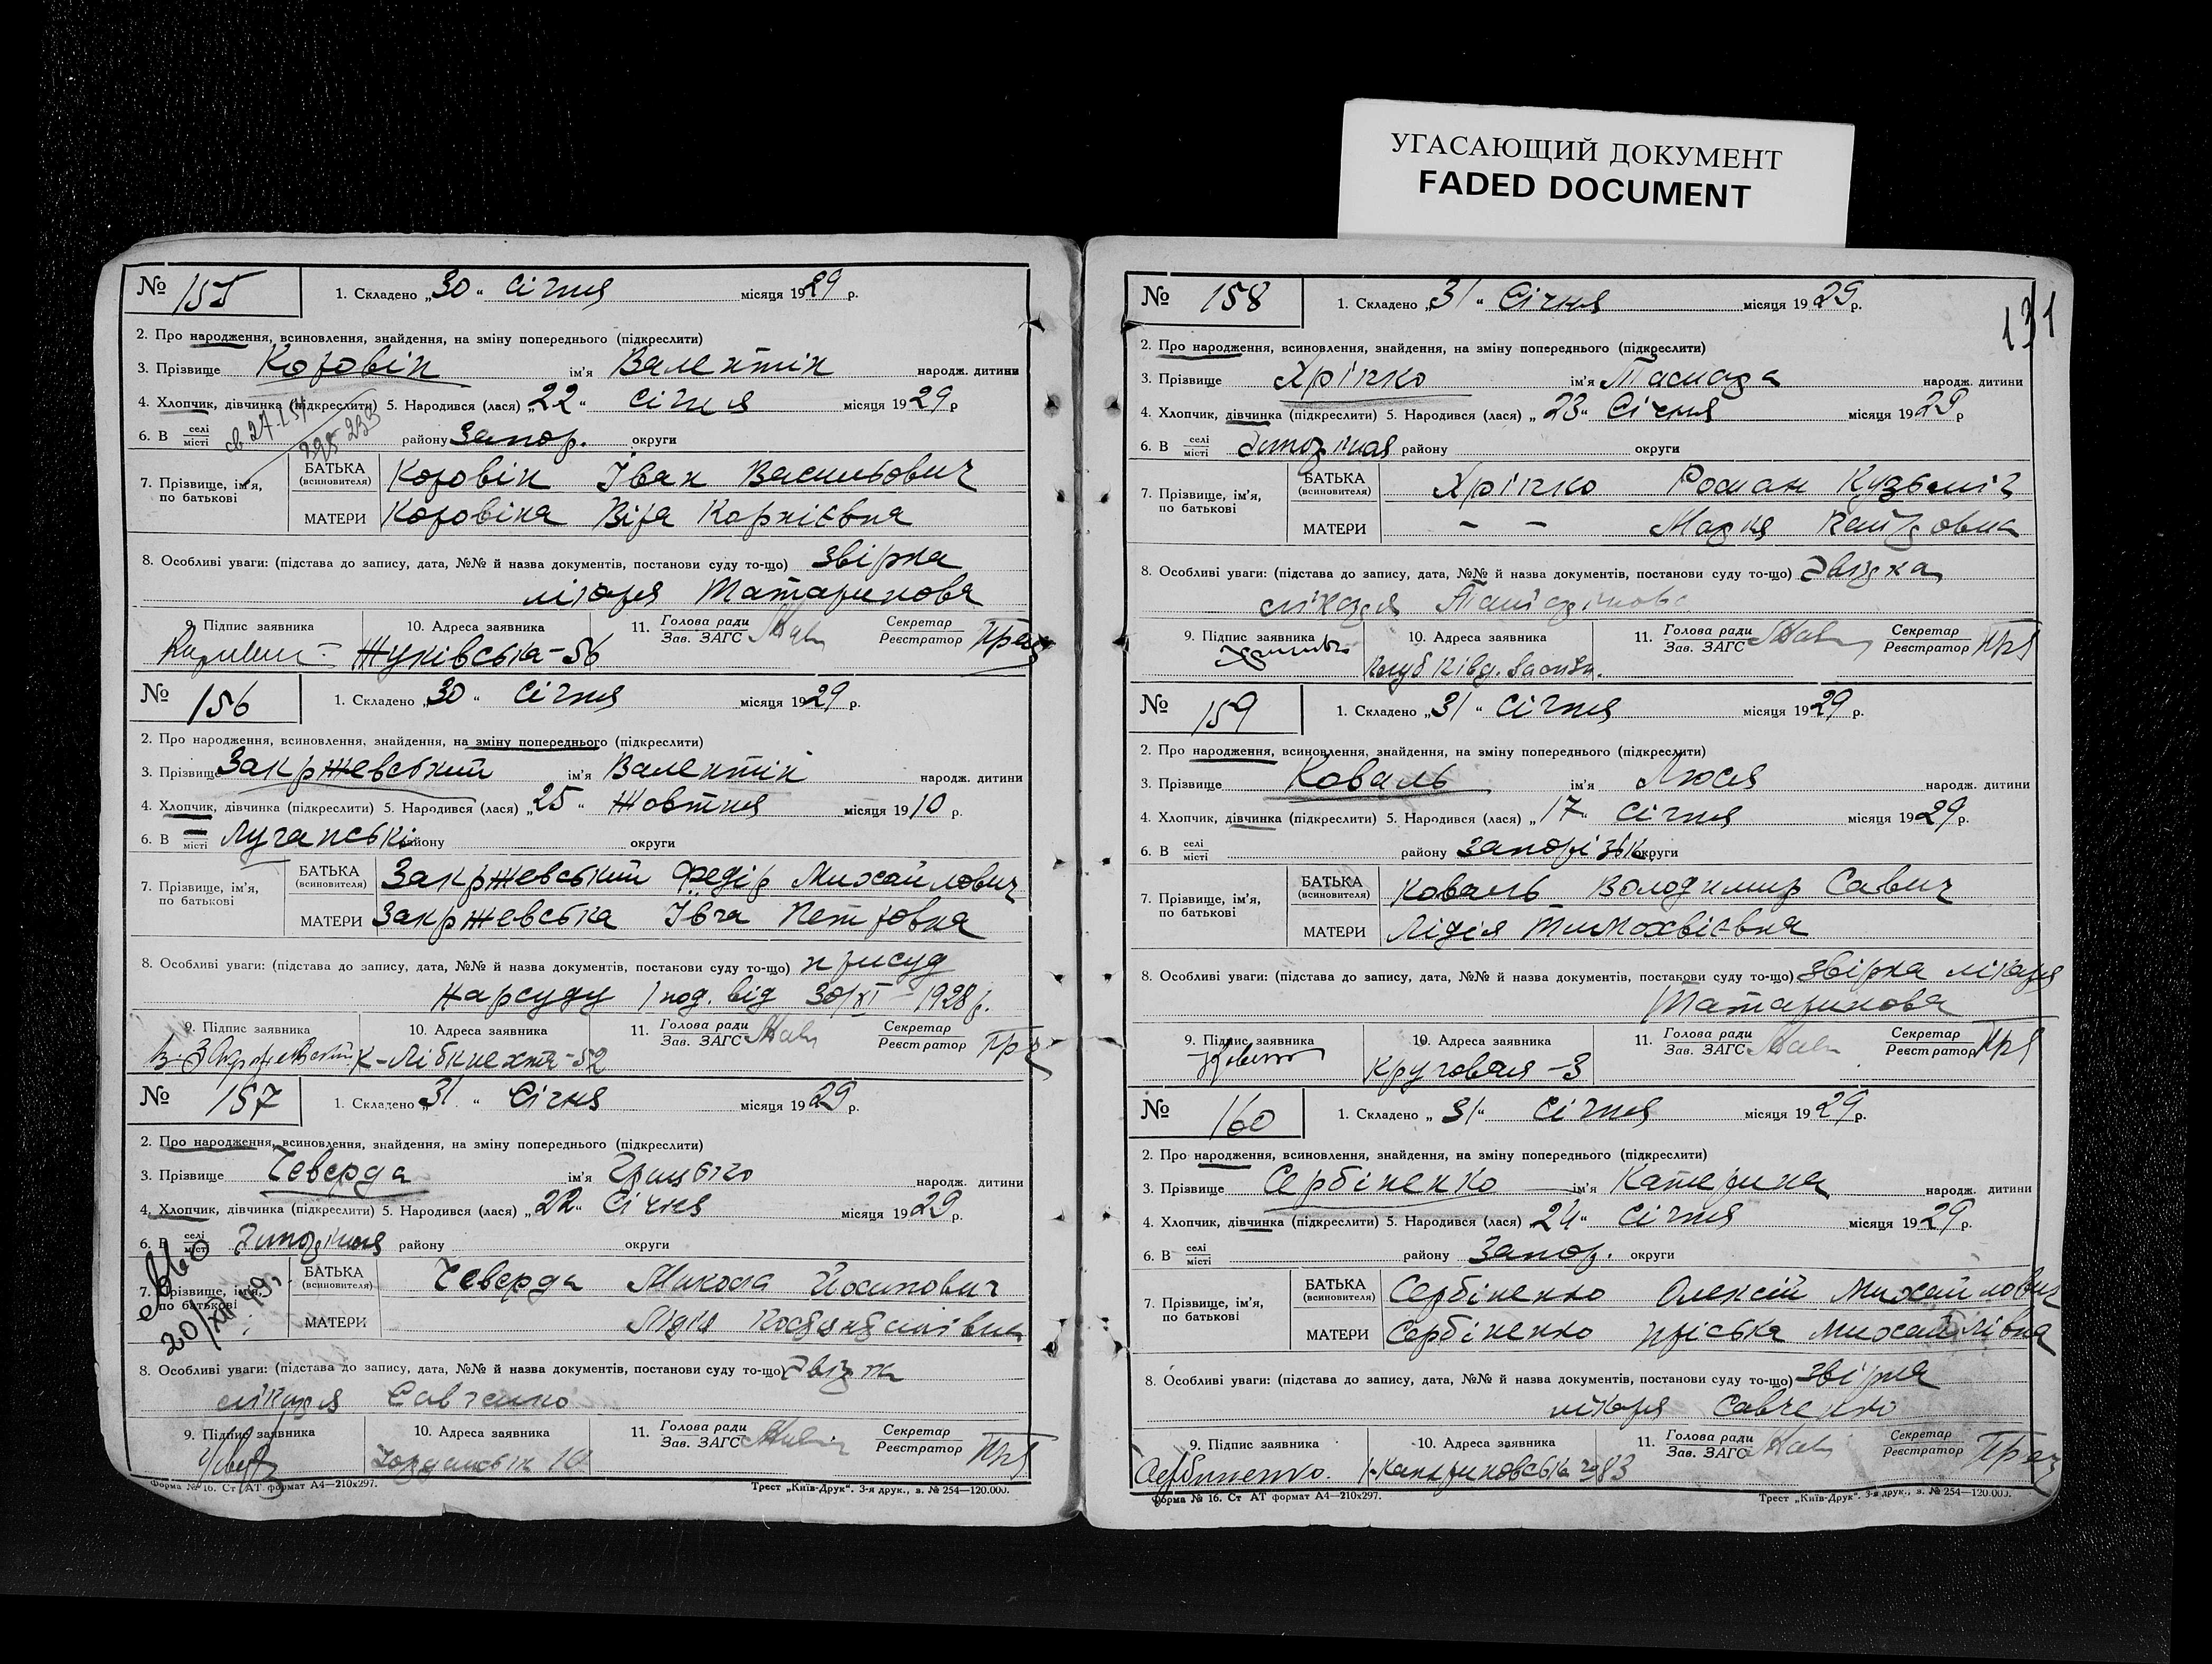 УГАСАЮЩИЙ ДОКУМЕНТ
FADED DOCUMENT
№ 155 1. Складено „30“ Січня місяця 1929 р.
2. Про народження, всиновлення, знайдення, на зміну попереднього (підкреслити)
3. Прізвище Коровін ім'я Валентін народж. дитини
4. Хлопчик, дівчинка (підкреслити) 5. Народився (лася) „22“ січня місяця 1929 р
6. В селі місті району Запор. округи
7. Прізвище, ім'я, по батькові
БАТЬКА (всиновителя) Коровін Іван Васильович
МАТЕРИ Коровіна Віра Корнієвна
8. Особливі уваги: (підстава до запису, дата, №№ й назва документів, постанови суду то-що) звірка
лікаря Татарінова
9. Підпис заявника 10. Адреса заявника 11. Голова ради Зав. ЗАГС Секретар Реєстратор
Жуківська-56
№ 156 1. Складено „30“ Січня місяця 1929 р.
2. Про народження, всиновлення, знайдення, на зміну попереднього (підкреслити)
3. Прізвище Закржевський ім'я Валентін народж. дитини
4. Хлопчик, дівчинка (підкреслити) 5. Народився (лася) „25“ Жовтня місяця 1910 р.
6. В місті Луганські району округи
7. Прізвище, ім'я, по батькові
БАТЬКА (всиновителя) Закржевський Федір Михайлович
МАТЕРИ Закржевська Івга Петровна
8. Особливі уваги: (підстава до запису, дата, №№ й назва документів, постанови суду то-що) присуд
Нарсуду 1 под. від 30/XI - 1928 р.
9. Підпис заявника 10. Адреса заявника 11. Голова ради Зав. ЗАГС Секретар Реєстратор
К-Лібкнехта-52
№ 157 1. Складено „31“ Січня місяця 1929 р.
2. Про народження, всиновлення, знайдення, на зміну попереднього (підкреслити)
3. Прізвище Чеверда ім'я народж. дитини
4. Хлопчик, дівчинка (підкреслити) 5. Народився (лася) „22“ Січня місяця 1929 р.
6. В селі місті району округи
20/XII 49
7. Прізвище, ім'я, по батькові
БАТЬКА (всиновителя) Чеверда Микола Йосипович
МАТЕРИ Лідія
8. Особливі уваги: (підстава до запису, дата, №№ й назва документів, постанови суду то-що) звірка
лікаря Савченко
9. Підпис заявника 10. Адреса заявника 11. Голова ради Зав. ЗАГС Секретар Реєстратор
Форма № 16. Ст АТ формат А4—210х297. Трест „Київ-Друк“. 3-я друк., з. № 254—120.000.
131
№ 158 1. Складено „31“ Січня місяця 1929 р.
2. Про народження, всиновлення, знайдення, на зміну попереднього (підкреслити)
3. Прізвище Хрічко ім'я Тамара народж. дитини
4. Хлопчик, дівчинка (підкреслити) 5. Народився (лася) „23“ Січня місяця 1929 р
6. В селі місті району округи
7. Прізвище, ім'я, по батькові
БАТЬКА (всиновителя) Хрічко Роман Кузьміч
МАТЕРИ – – Марія
8. Особливі уваги: (підстава до запису, дата, №№ й назва документів, постанови суду то-що) звірка
лікаря Татарінова
9. Підпис заявника 10. Адреса заявника 11. Голова ради Зав. ЗАГС Секретар Реєстратор
№ 159 1. Складено „31“ Січня місяця 1929 р.
2. Про народження, всиновлення, знайдення, на зміну попереднього (підкреслити)
3. Прізвище Коваль ім'я Люся народж. дитини
4. Хлопчик, дівчинка (підкреслити) 5. Народився (лася) „17“ Січня місяця 1929 р.
6. В селі місті району Запорізьк округи
7. Прізвище, ім'я, по батькові
БАТЬКА (всиновителя) Коваль Володимир Савич
МАТЕРИ Лідія Тимохвієвна
8. Особливі уваги: (підстава до запису, дата, №№ й назва документів, постанови суду то-що) звірка лікаря
Татарінова
9. Підпис заявника 10. Адреса заявника 11. Голова ради Зав. ЗАГС Секретар Реєстратор
Круговая-3
№ 160 1. Складено „31“ Січня місяця 1929 р.
2. Про народження, всиновлення, знайдення, на зміну попереднього (підкреслити)
3. Прізвище Сербіненко ім'я Катерина народж. дитини
4. Хлопчик, дівчинка (підкреслити) 5. Народився (лася) 24“ Січня місяця 1929 р.
6. В селі місті району Запор. округи
7. Прізвище, ім'я, по батькові
БАТЬКА (всиновителя) Сербіненко Олексій Михайлович
МАТЕРИ Сербіненко Пріська Михайлівна
8. Особливі уваги: (підстава до запису, дата, №№ й назва документів, постанови суду то-що) звірка
лікаря Савченко
9. Підпис заявника 10. Адреса заявника 11. Голова ради Зав. ЗАГС Секретар Реєстратор
Сербиненко.
Форма № 16. Ст АТ формат А4—210х297. Трест „Київ-Друк“. 3-я друк., з. № 254—120.000.